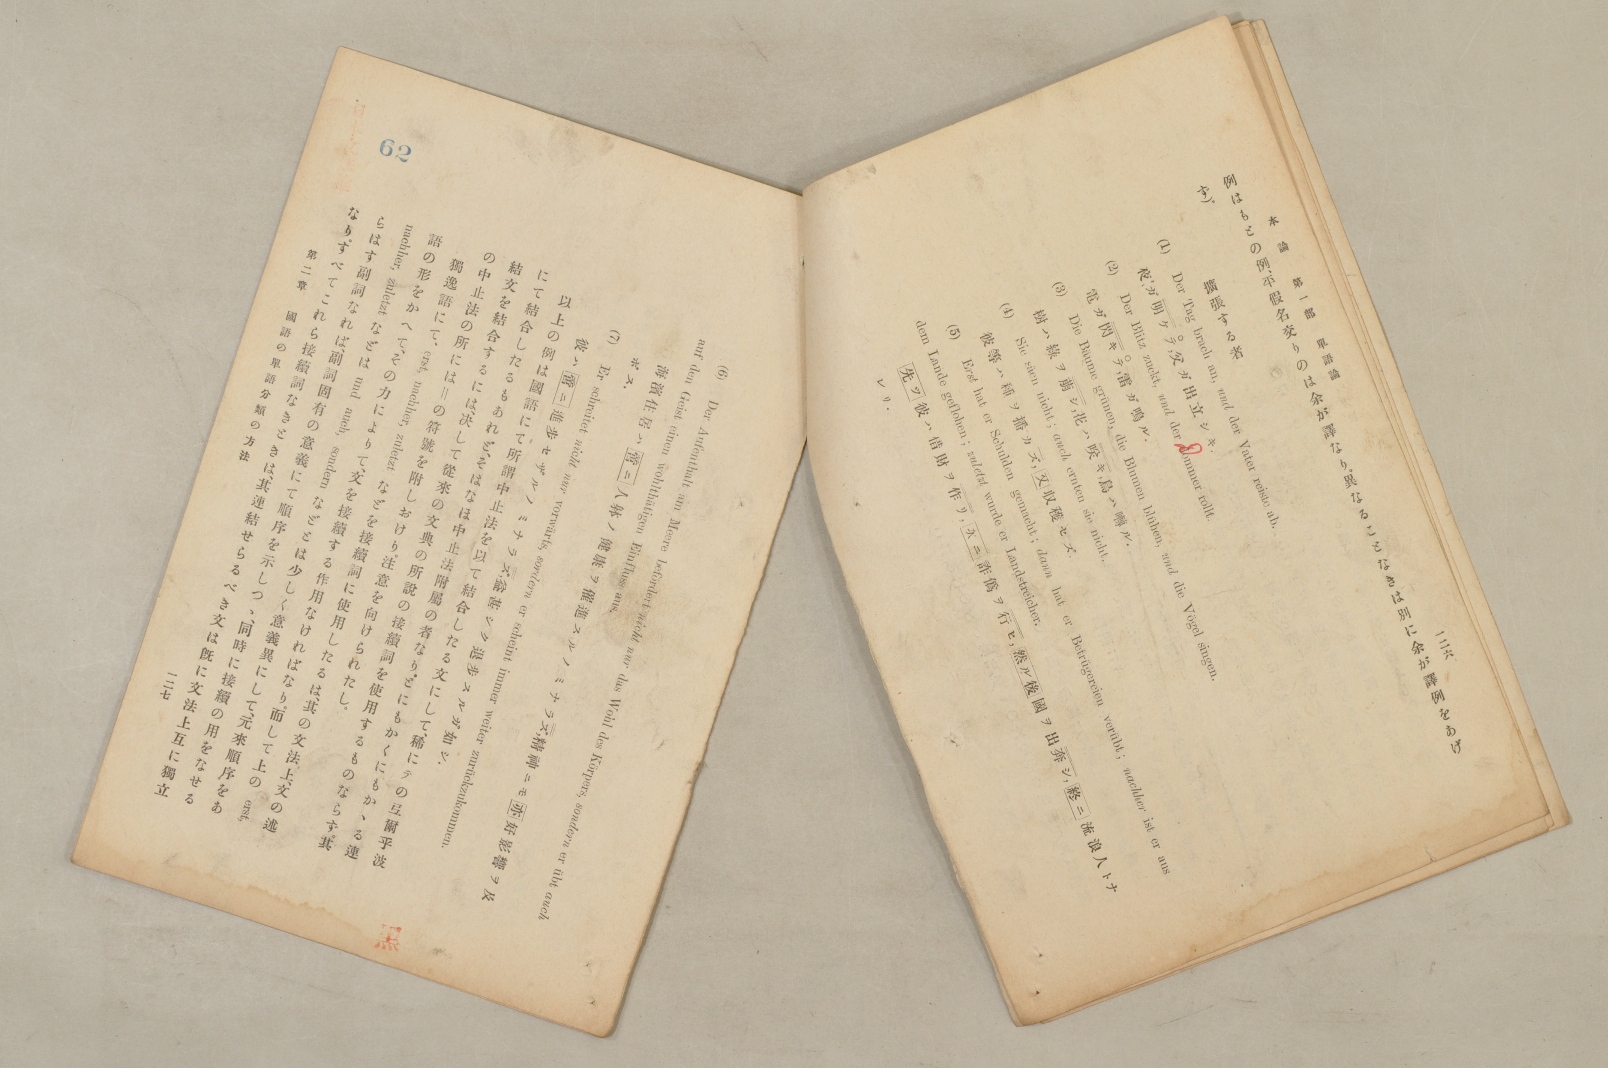 本論 第一部 單語論
一二六
例はもとの例、平假名交りのは余が譯なり。異なることなきは別に余が譯例をあげ
ず)。
擴張する者
(1) Der Tag brach an, und der Vater reiste ab.
夜ガ明ケテ、父ガ出立シキ.
(2) Der Blitz zuckt, und der Donner rollt.
電ガ閃キテ、雷ガ鳴ル.
(3) Die Bäume grünen, die Blumen blühen, und die Vögel singen.
樹ハ綠ヲ萠シ、花ハ咲キ、鳥ハ囀ル.
(4) Sie säen nicht; auch ernten sie nicht.
彼等ハ種ヲ播カズ、又收穫セズ.
(5) Erst hat er Schulden gemacht; dann hat er Betrügereien verübt; nachher ist er aus
dem Lande geflohen; zuletzt wurde er Landstreicher.
先ヅ彼ハ借財ヲ作リ、次ニ詐僞ヲ行ヒ、然ル後國ヲ出奔シ、終ニ流浪人トナ
レリ.
(6) Der Aufenthalt am Meere befördert nicht nur das Wohl des Körpers, sondern er übt auch
auf den Geist einen wohlthätigen Einfluss aus.
海濱住居ハ啻ニ人躰ノ健康ヲ催進スルノミナラズ、精神ニモ亦好影響ヲ及
ボス.
(7) Er schreitet nicht nur vorwärts, sondern er scheint immer weiter zurückzukommen.
彼ハ啻ニ進歩セザルノミナラズ、進歩スルガ如シ.
以上の例は國語にて所謂中止法を以て結合したる文にして、稀にテの弖爾乎波
にて結合したるもあれど、そはなほ中止法附屬の者なり。とにもかくにもかゝる連
結文を結合するには、決して從來の文典の所説の接續詞を使用するものならず。其
の中止法の所には=の符號を附しおけり。注意を向けられたし。
獨逸語にて、erst, nachher, zuletzt などを接續詞に使用したるは其の文法上、文の述
語の形をかへて、その力によりて、文を接續する作用なければなり。而して上の erst,
nachher, zuletzt などは und auch, sondern などとは少しく意義異にして、元來順序をあ
らはす副詞なれば、副詞固有の意義にて順序を示しつゝ、同時に接續の用をなせる
なり。すべてこれら接續詞なきときは、其連結せらるべき文は既に文法上互に獨立
第二章 國語の單語分類の方法
一二七
62